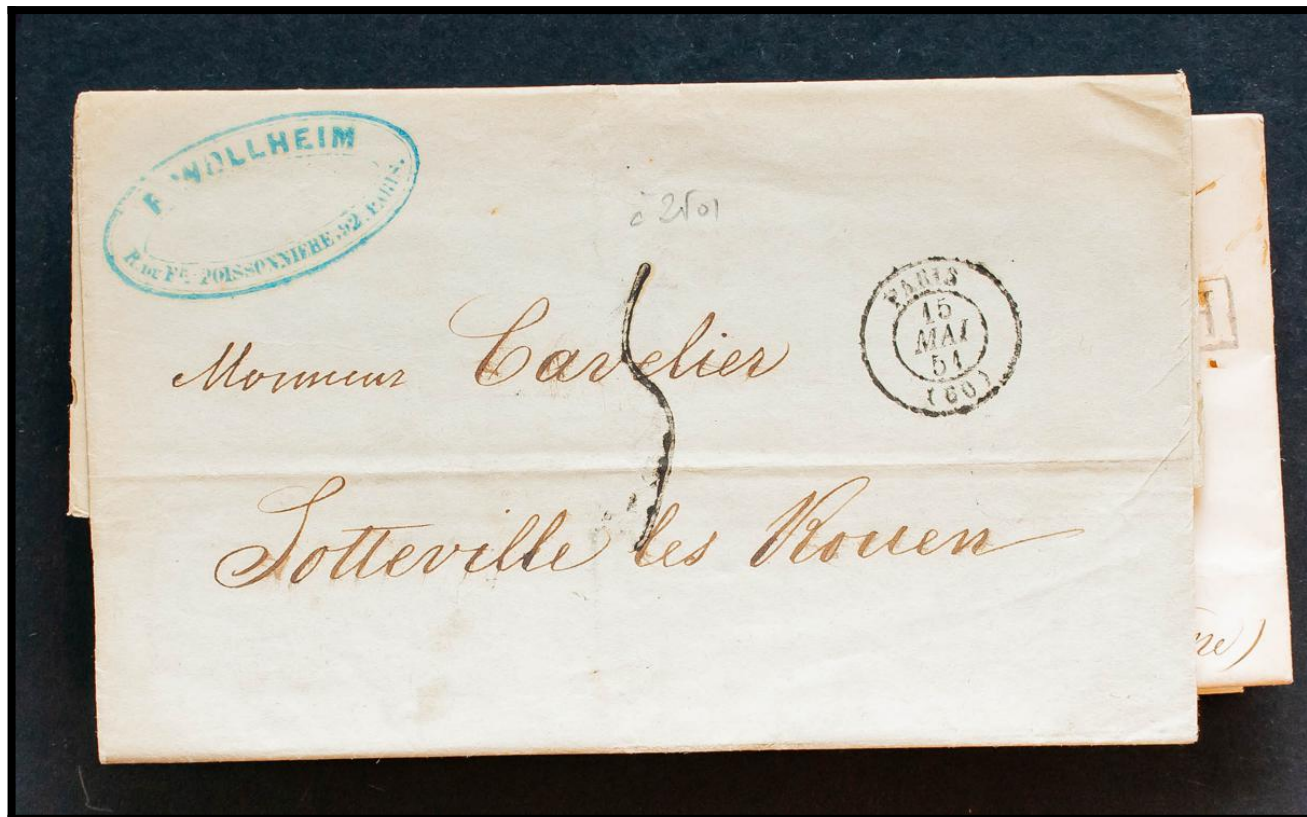 F. WOLLHEIM
R. DU Fg. POISSONNIÈRE. 92. PARIS.
à 2f01
PARIS
15
MAI
51
(60)
Monsieur Cavelier
5
Sotteville les Rouen
ne)